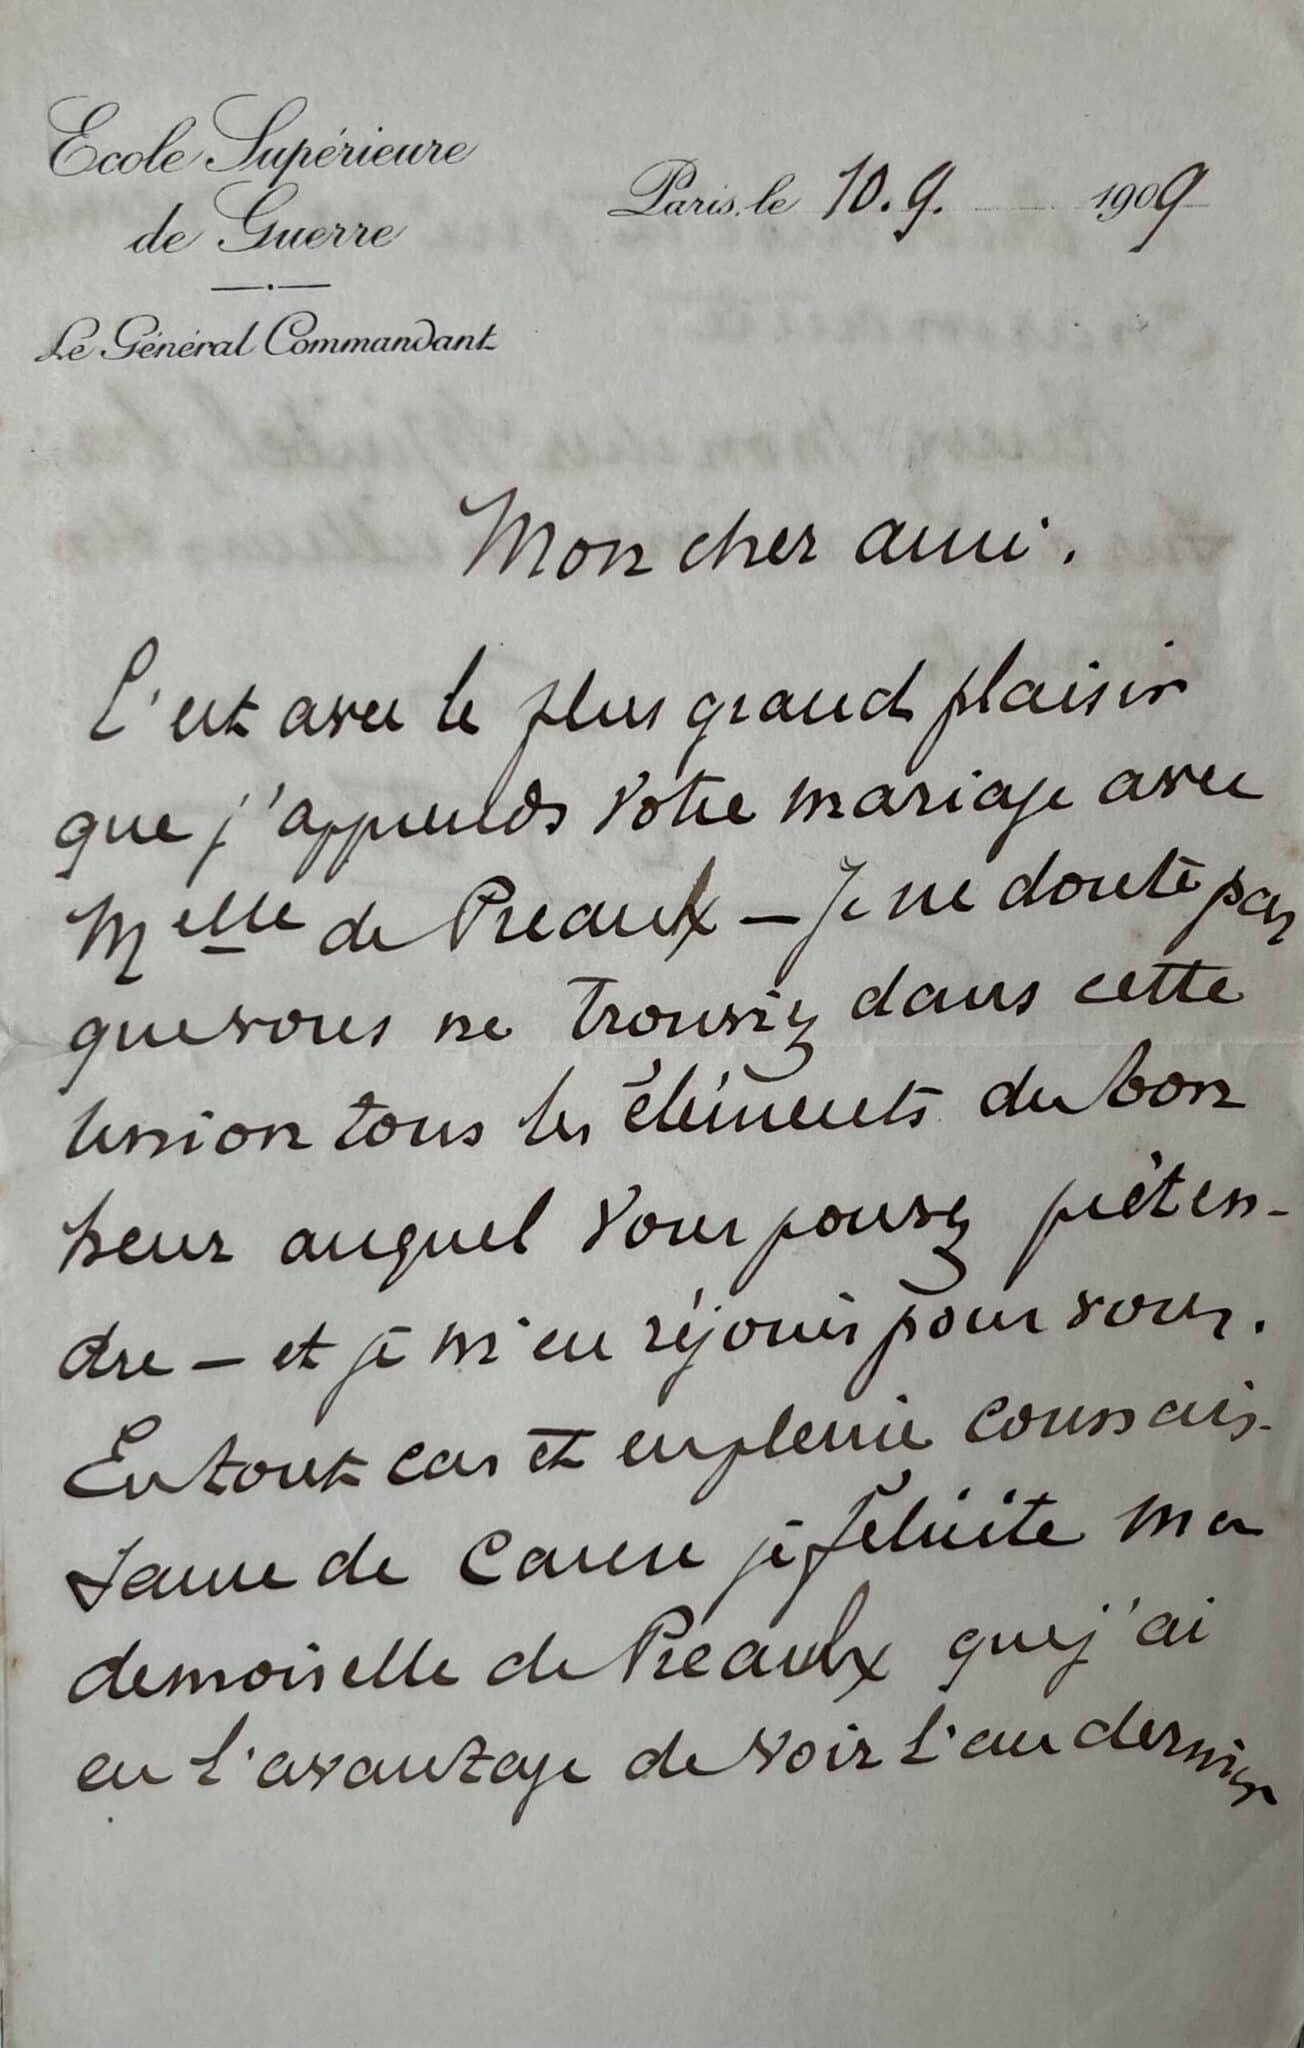 Ecole Supérieure
de Guerre
Le Général Commandant
Paris, le 10.9. 1909
Mon cher ami.
C'est avec le plus grand plaisir
que j'apprends votre mariage avec
Melle de Preaulx — Je ne doute pas
que vous ne trouviez dans cette
union tous les éléments du bon
heur auquel vous pouvez préten-
dre — et je m'en réjouis pour vous.
En tout cas et en pleine connais-
sance de cause je félicite Ma
demoiselle de Preaulx que j'ai
eu l'avantage de voir l'an dernier